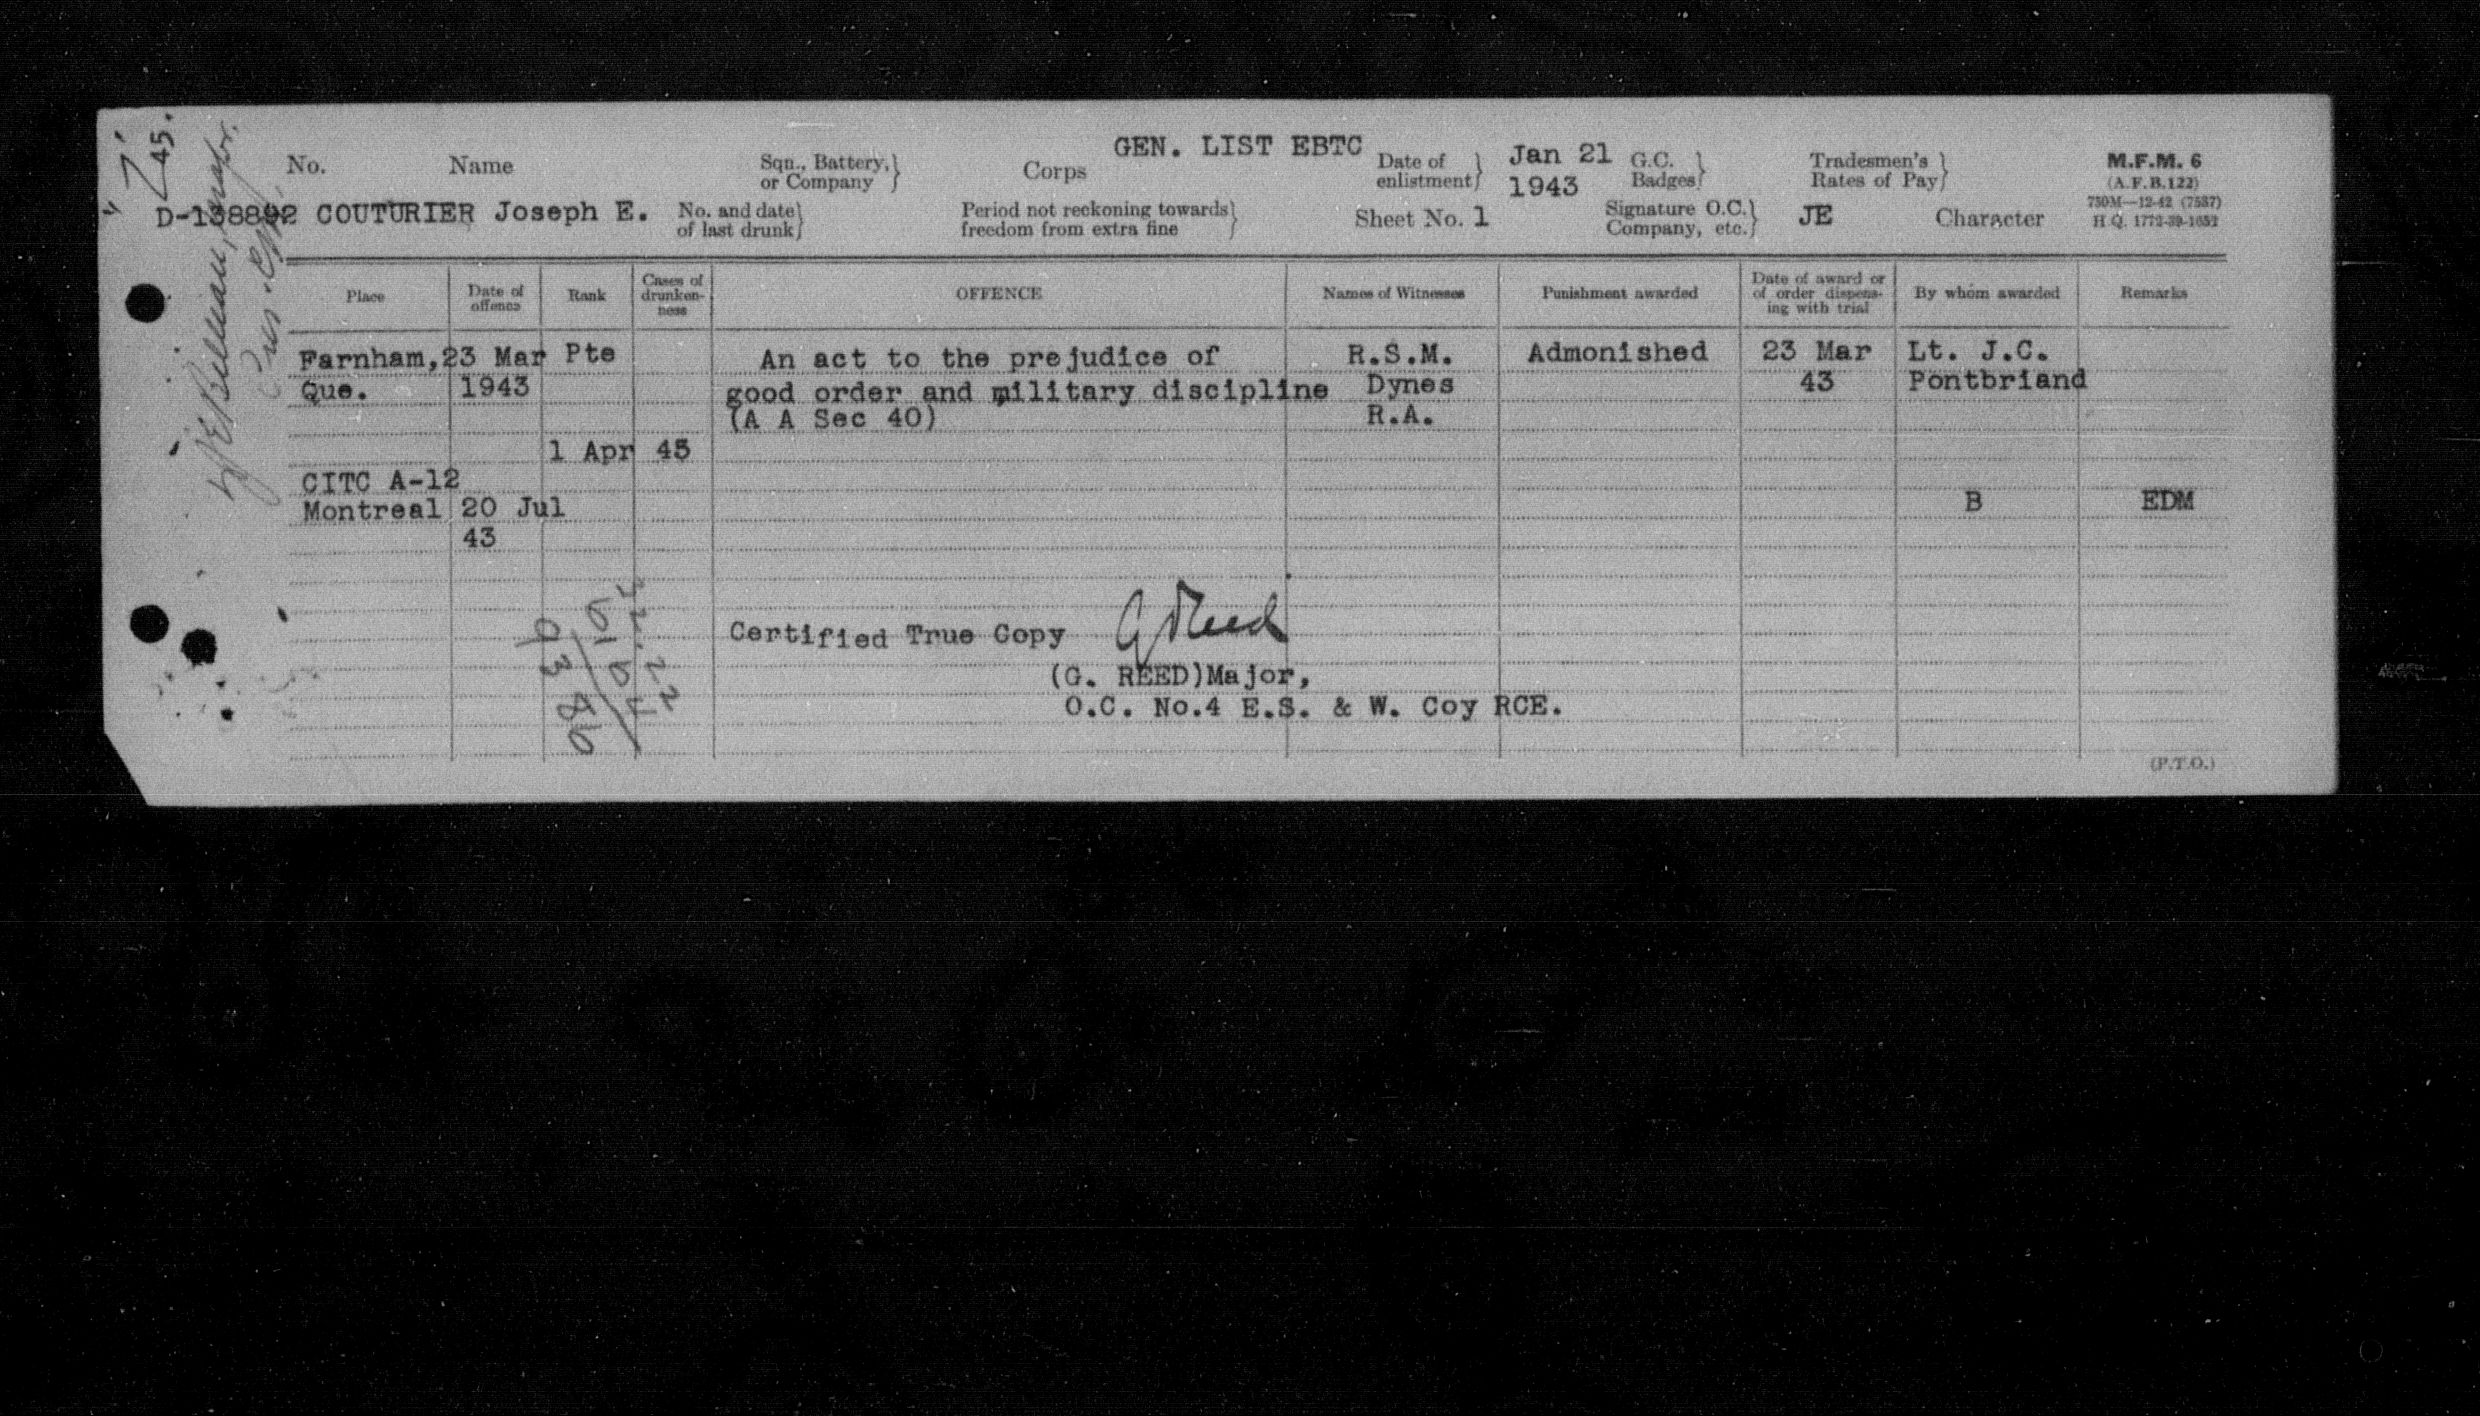 GEN. LIST EBTC
No. Name Sqn., Battery, or Company Corps Date of enlistment Jan 21 1943 G.C. Badges Tradesmen's Rates of Pay M.F.M. 6
(A.F.B.122)
750M—12-42 (7537)
H.Q. 1772-39-1652
D-138892 COUTURIER Joseph E. No. and date of last drunk Period not reckoning towards freedom from extra fine Sheet No. 1 Signature O.C. Company, etc. JE Character
Place Date of offence Rank Cases of drunken-ness OFFENCE Names of Witnesses Punishment awarded Date of award or of order dispens-ing with trial By whom awarded Remarks
Farnham, 23 Mar Pte An act to the prejudice of R.S.M. Admonished 23 Mar Lt. J.C.
Que. 1943 good order and military discipline Dynes 43 Pontbriand
(A A Sec 40) R.A.
1 Apr 43
CITC A-12
Montreal 20 Jul B EDM
43
Certified True Copy G Reed
(G. REED)Major,
O.C. No.4 E.S. & W. Coy RCE.
(P.T.O.)
45.